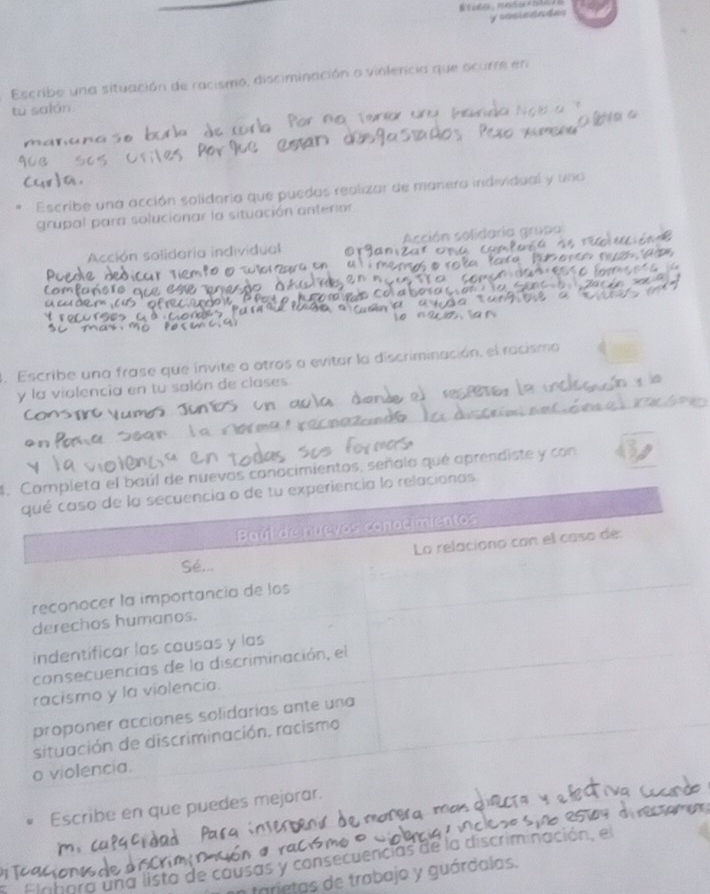 Ética, naturaleza
y sociedades
Escribe una situación de racismo, disciminación o violencia que ocurre en
tu salón.
mariana se burla de carla Por no tener una
que ses utiles Por que estan desgastados Pero ximena
curla.
• Escribe una acción solidaria que puedas realizar de manera individual y una
grupal para solucionar la situación anterior.
Acción solidaria individual
Acción solidaria grupal
Puede dedicar tiempo o
organizar una campaña de recolección de
compañero que este teniendo
alimentos o ropa Para
academicas ofreciendole apoyo
en nuestra comunidad esto fomenta la
y recursos adicionales Para que
colaboración, la sencibilización
su maximo Potencial
ayuda tangible a
lo nacesitan
3. Escribe una frase que invite a otros a evitar la discriminación, el racismo
y la violencia en tu salón de clases.
construyamos juntos un aula donde el respeto, la inclusión y la
enPatia sean la norma, rechazando la discriminación, el racismo
y la violencia en todas sus formas
4. Completa el baúl de nuevos conocimientos, señala qué aprendiste y con
qué caso de la secuencia o de tu experiencia lo relacionas.
Baúl de nuevos conocimientos
Sé...
Lo relaciono con el caso de:
reconocer la importancia de los
derechos humanos.
indentificar las causas y las
consecuencias de la discriminación, el
racismo y la violencia.
proponer acciones solidarias ante una
situación de discriminación, racismo
o violencia.
• Escribe en que puedes mejorar.
mi capacidad Para intervenir de manera mas directa y efectiva cuando
situaciones de discriminación o racismo o violencia, incluso si no estoy directamente
5. Elabora una lista de causas y consecuencias de la discriminación, el
en tarjetas de trabajo y guárdalas.